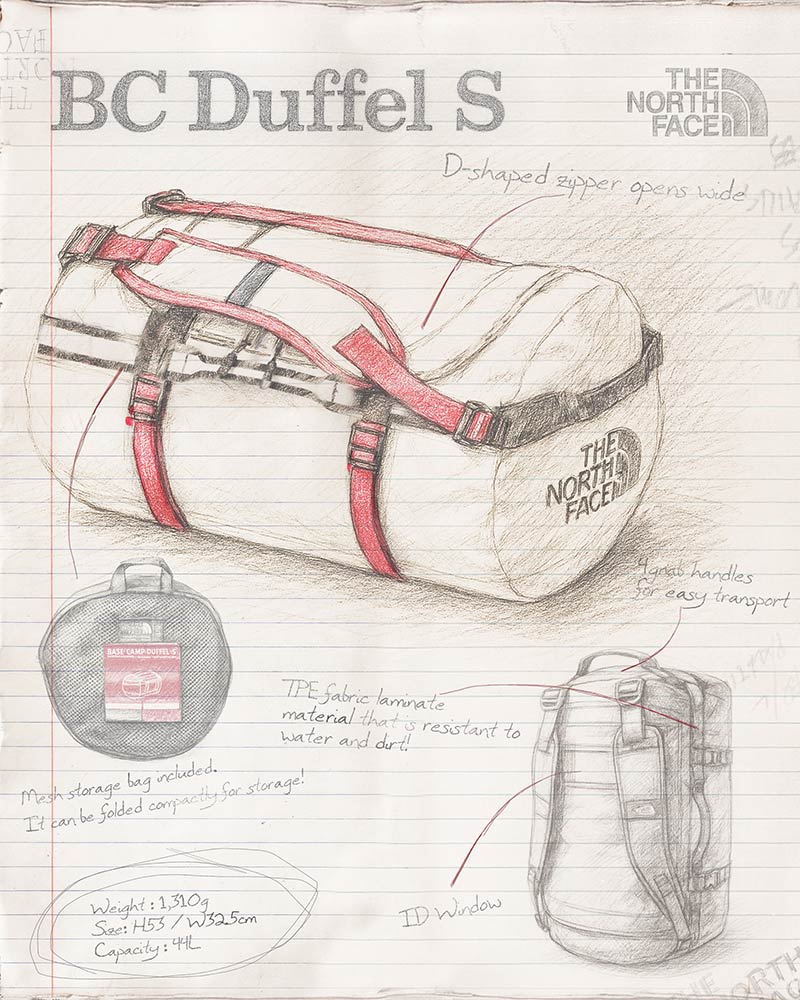 BC Duffel S
THE
NORTH
FACE
D-shaped zipper opens wide
THE
NORTH
FACE
4 grab handles
for easy transport
BASE CAMP DUFFEL-S
TPE fabric laminate
material that is resistant to
water and dirt!
Mesh storage bag included.
It can be folded compactly for storage!
ID Window
Weight : 1,310g
Size: H53 / W32.5cm
Capacity : 44L